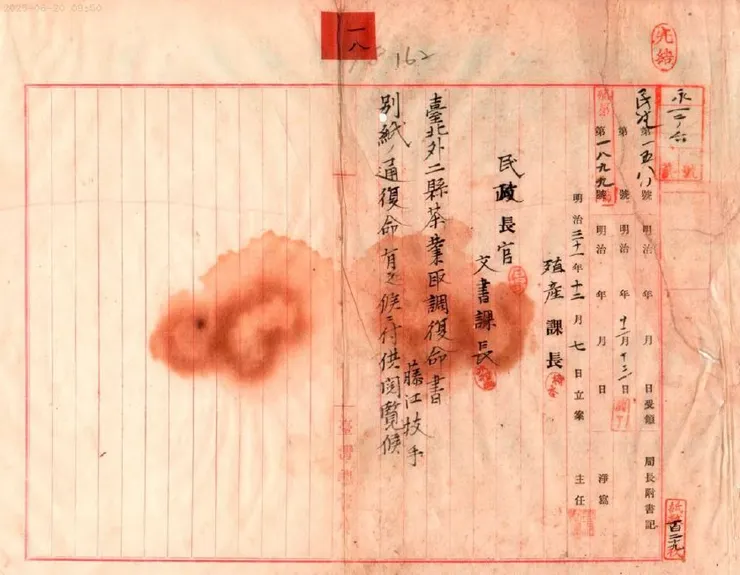 2025-06-20 09:50
一八
162
完結
永一ノ六
號
民殖第一五八〇號 明治 年 月 日受領 局長附書記
第 號 明治 年 十二月十二日 淨寫
第一八九九號 明治 年 月 日
明治三十一年十二月七日立案 主任
殖産課長
民政長官
文書課長
臺北外二縣茶業取調復命書
藤江技手
別紙ノ通復命有之候ニ付供閲覽候
臺灣總
百二十九